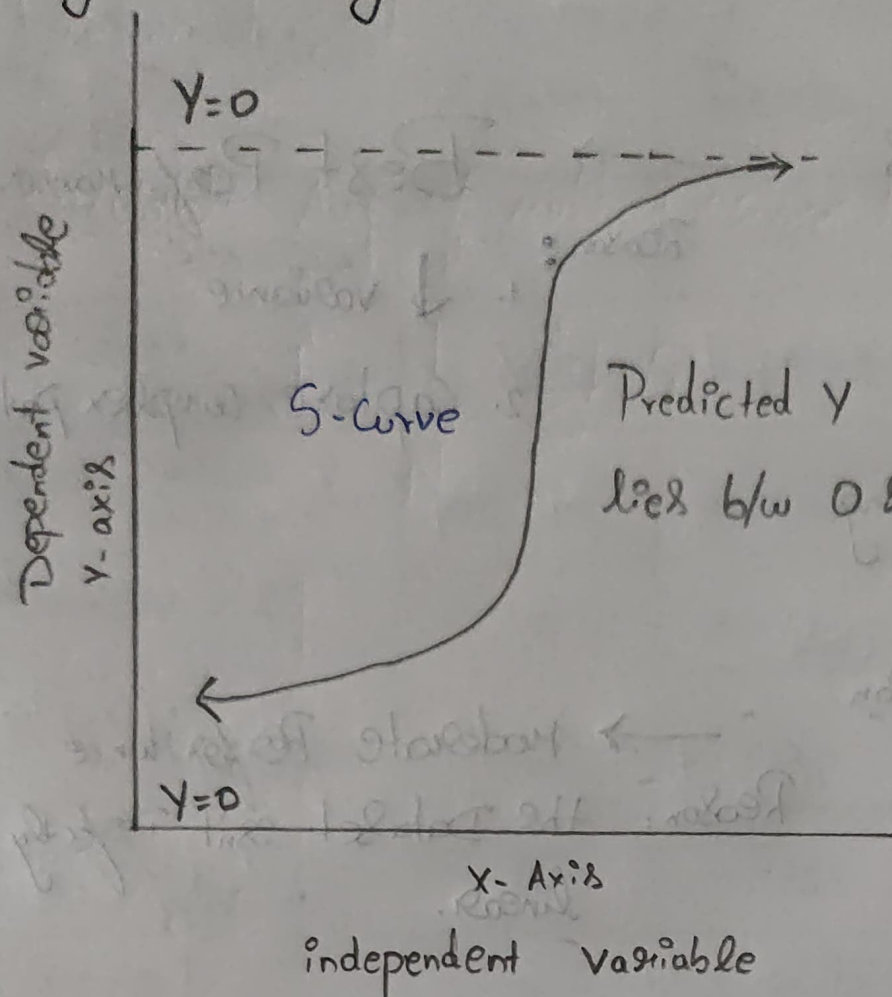 Y=0
Dependent variable
Y-axis
S-Curve
Predicted Y
lies b/w 0
Y=0
X-Axis
independent variable